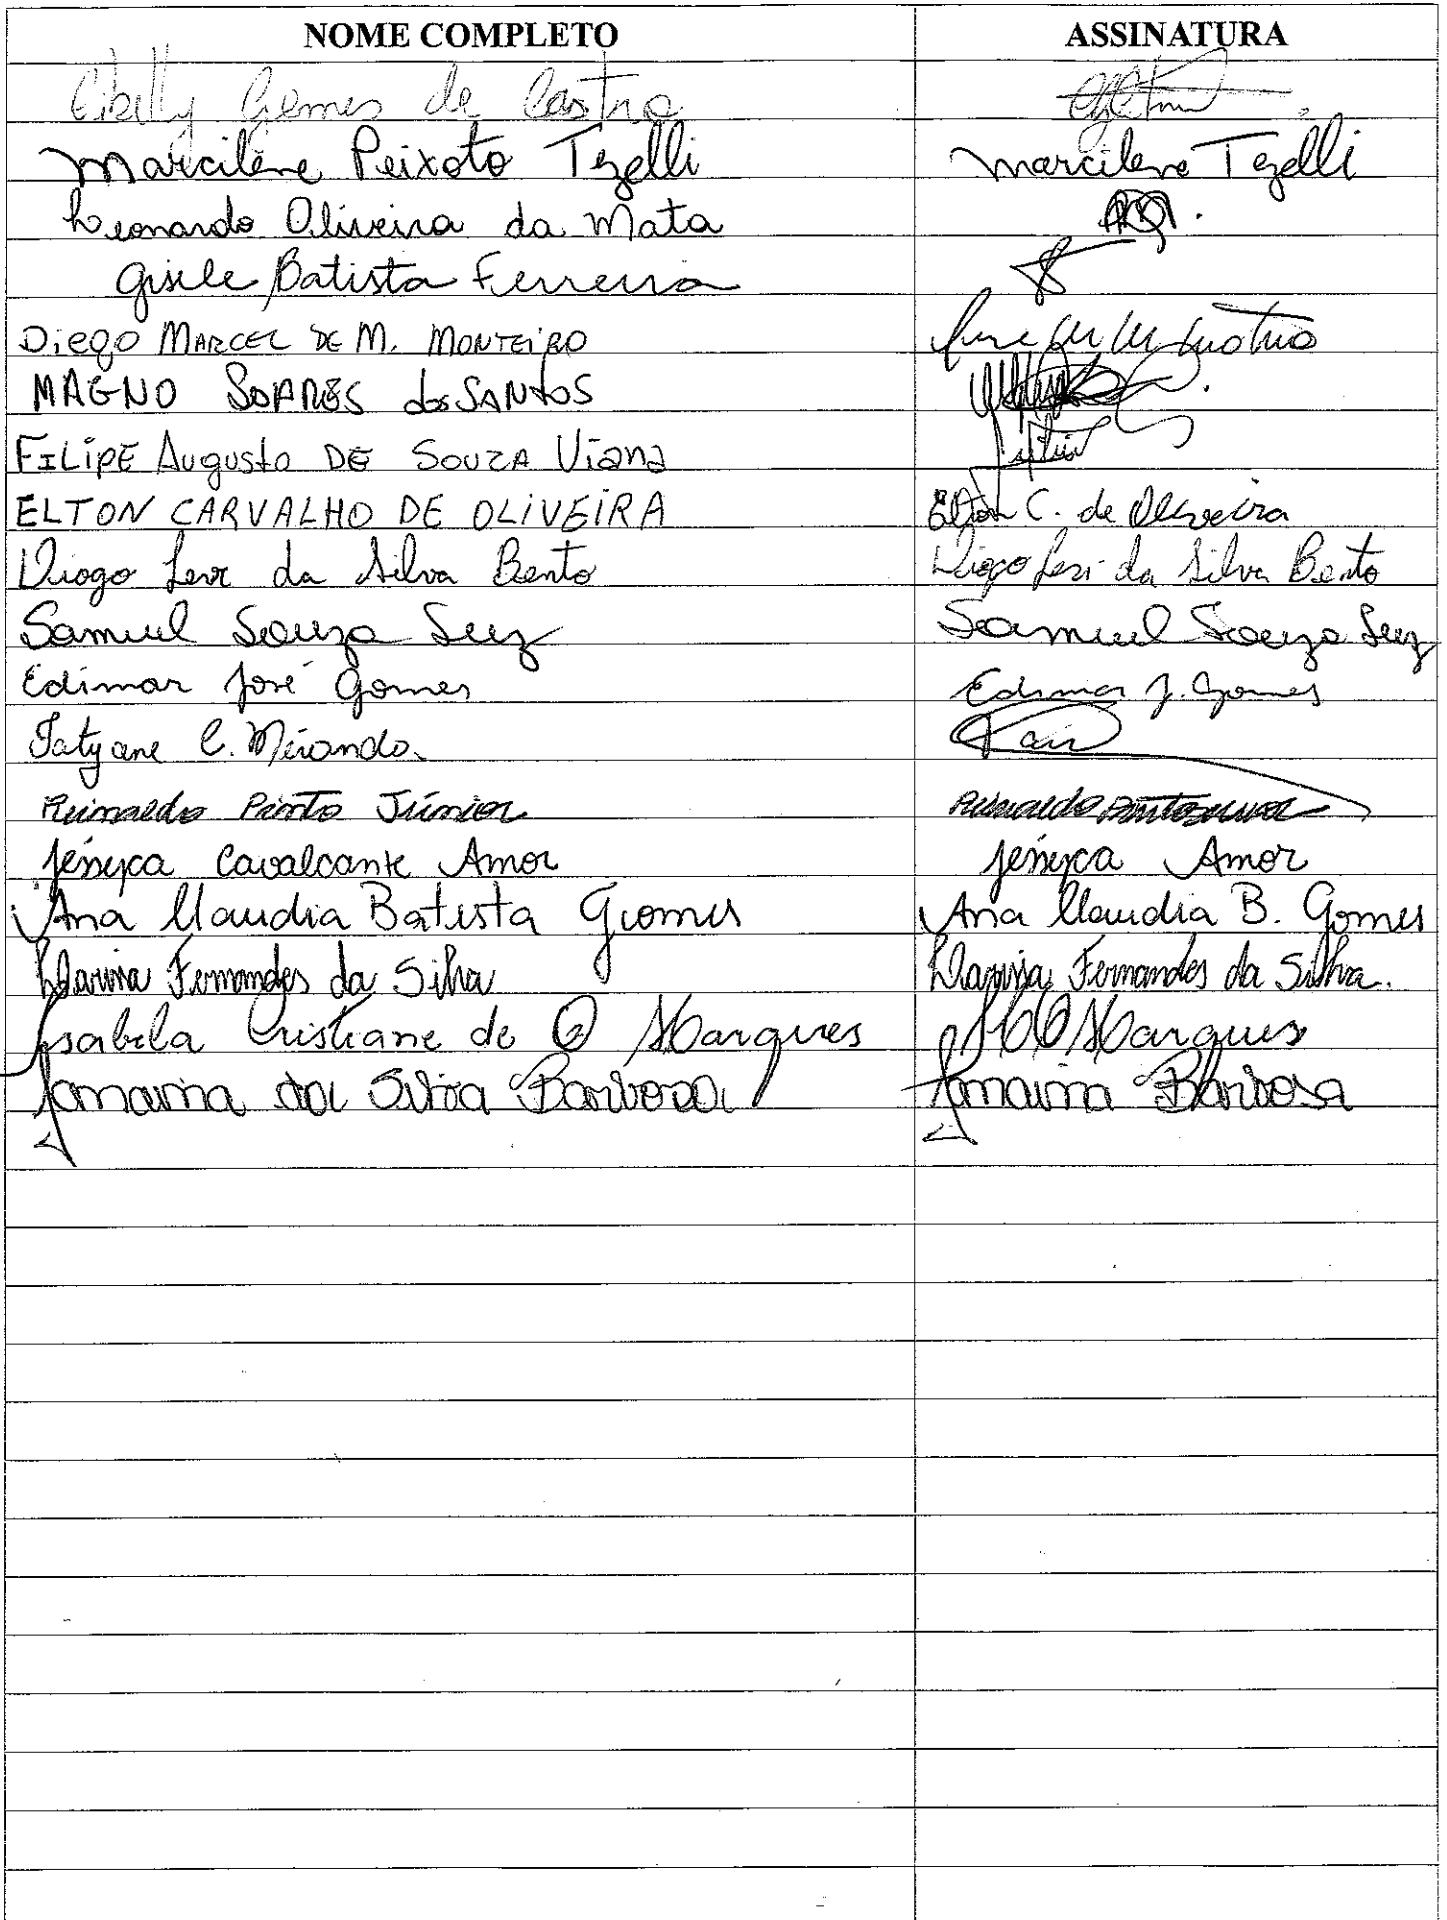 NOME COMPLETO ASSINATURA
Gomes de Castro
Marcilene Peixoto Tezelli Marcilene Tezelli
Leonardo Oliveira da Mata
Gisele Batista Ferreira
Diego MARCEL DE M. MONTEIRO
MAGNO SOARES dos SANTOS
FILIPE Augusto DE SOUZA Viana
ELTON CARVALHO DE OLIVEIRA Elton C. de Oliveira
Diogo Levi da Silva Bento Diogo Levi da Silva Bento
Samuel Souza Luz Samuel Souza Luz
Edimar José Gomes Edimar J. Gomes
Tatyane C. Miranda.
Reinaldo Pinto Júnior Reinaldo Pinto Junior
Jéssyca Cavalcante Amor Jéssyca Amor
Ana Claudia Batista Gomes Ana Claudia B. Gomes
Fernandes da Silva Fernandes da Silva.
Isabela Cristiane de O Marques Marques
Janaina da Silva Barbosa Janaina Barbosa